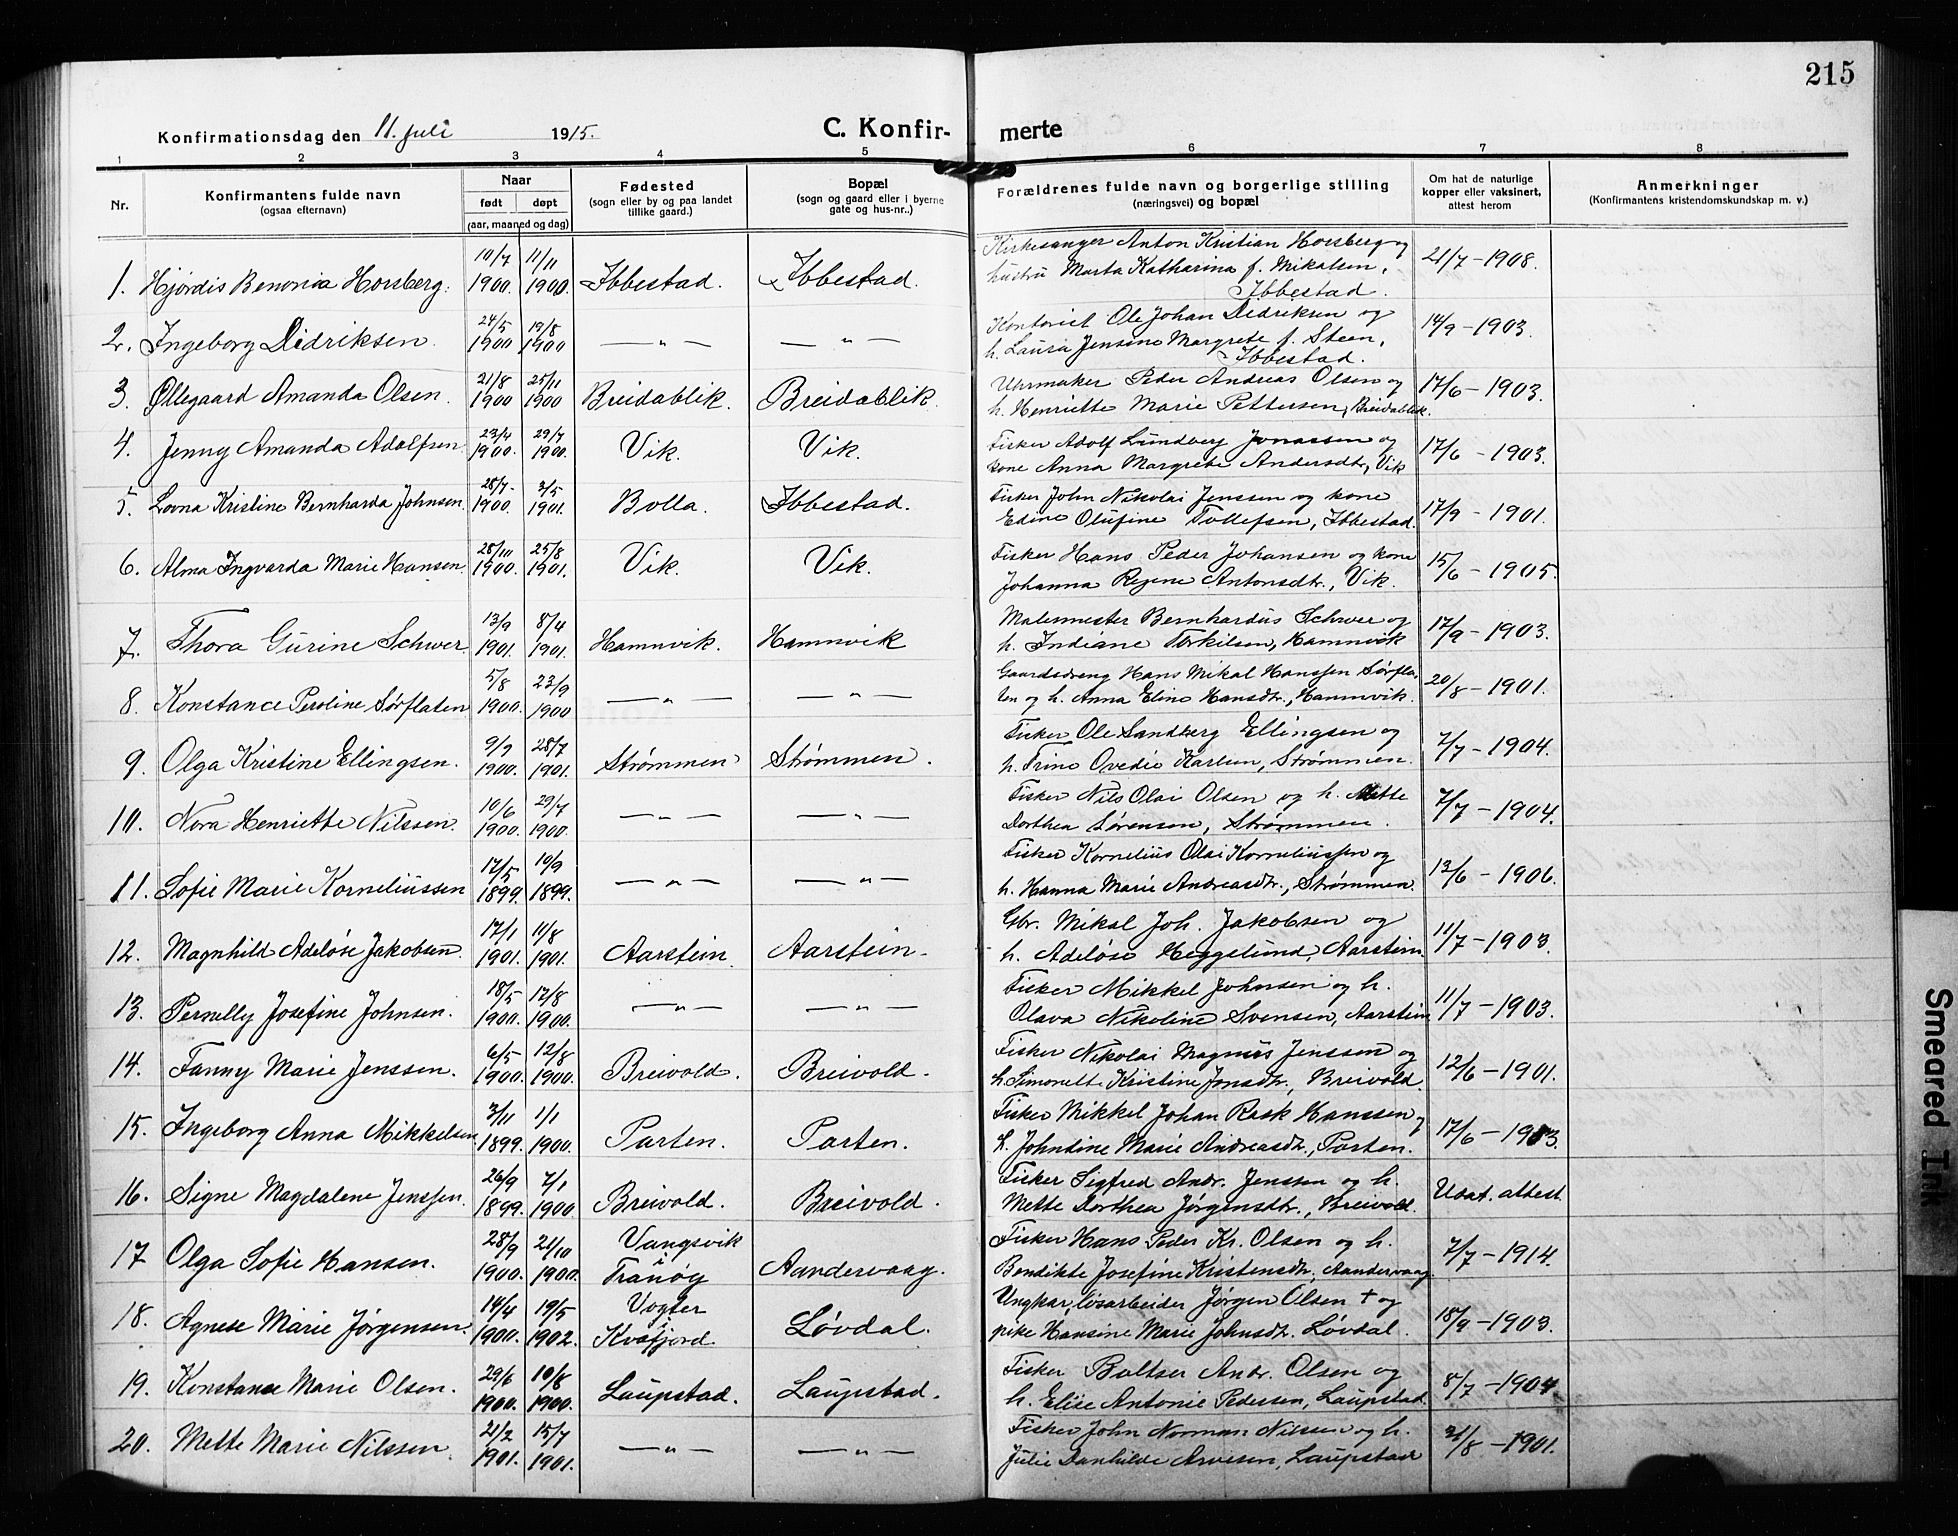 215
Konfirmationsdag den 11. juli 1915.
C. Konfir- merte
1 2 3 4 5 6 7 8
Nr.
Konfirmantens fulde navn
(ogsaa efternavn)
Naar
født døpt
(aar, maaned og dag)
Fødested
(sogn eller by og paa landet
tillike gaard.)
Bopæl
(sogn og gaard eller i byerne
gate og hus-nr.)
Forældrenes fulde navn og borgerlige stilling
(næringsvei) og bopæl
Om hat de naturlige
kopper eller vaksinert,
attest herom
Anmerkninger
(Konfirmantens kristendomskundskap m. v.)
10/7 11/11 Kirkesanger Anton Kristian Horsberg og
1. Hjørdis Benonia Horsberg. 1900. 1900 Ibbestad. Ibbestad. hustru Marta Katharina f. Mikalsen, 21/7-1908.
Ibbestad.
24/5 19/8 Kontorist Ole Johan Didriksen og
2. Ingeborg Didriksen. 1900 1900 — " — — " — h. Laura Jensine Margrete f. Steen, 14/9-1903.
Ibbestad.
21/8 25/11 Uhrmaker Peder Andreas Olsen og
3. Øllegaard Amanda Olsen. 1900 1900 Breidablik. Breidablik. h. Henriette Marie Pettersen, Breidablik. 17/6-1903.
23/4 29/7 Fisker Adolf Lundberg Jonassen og
4. Jenny Amanda Adolfsen 1900. 1900. Vik. Vik. kone Anna Margrete Andersdtr, Vik 17/6-1903.
28/7 3/5 Fisker John Nikolai Jenssen og kone
5. Lovna Kristine Bernharda Johnsen. 1900. 1901. Bolla. Ibbestad. Edine Olufine Tollefsen, Ibbestad. 17/9-1901.
28/10 25/8 Fisker Hans Peder Johansen og kone
6. Alma Ingvarda Marie Hansen. 1900. 1901. Vik. Vik. Johanna Regine Antonsdtr., Vik. 15/6-1905.
13/9 8/4 Malermester Bernhardus Schwer og
7. Thora Gurine Schwer. 1901. 1901. Hamnvik. Hamnvik h. Indiane Torkilsen, Hamnvik 17/9-1903.
5/8 23/9 Gaardsdreng Hans Mikal Hanssen Sørfla-
8. Konstance Peroline Sørflaten 1900. 1900 — " — — " — ten og h. Anna Eline Hansdtr., Hamnvik. 20/8-1901.
9/7 28/7 Fisker Ole Sandberg Ellingsen og
9. Olga Kristine Ellingsen. 1900. 1901. Strømmen Strømmen. h. Trine Ovedie Karlsen, Strømmen. 7/7-1904.
10/6 29/7 Fisker Nils Olai Olsen og h. Mette
10. Nora Henriette Nilssen. 1900. 1900. — " — — " — Dorthea Sørensen, Strømmen. 7/7-1904.
17/5 10/9 Fisker Kornelius Olai Korneliussen og
11. Sofie Marie Korneliussen 1899. 1899. — " — — " — h. Hanna Marie Andreasdtr., Strømmen. 13/6-1906.
17/1 11/8 Gbr. Mikal Joh. Jakobsen og
12. Magnhild Adeløse Jakobsen. 1901. 1901. Aarstein. Aarstein. h. Adeløse Heggelund, Aarstein. 11/7-1903.
18/5 12/8 Fisker Mikkel Johnsen og h.
13. Pernelly Josefine Johnsen. 1900. 1900. — " — — " — Olava Nikoline Svensen, Aarstein. 11/7-1903.
6/5 12/8 Fisker Nikolai Magnus Jenssen og
14. Fanny Marie Jenssen. 1900. 1900. Breivold. Breivold. h. Simonette Kristine Jonsdtr, Breivold. 12/6-1901.
3/11 1/1 Fisker Mikkel Johan Rask Hanssen og
15. Ingeborg Anna Mikkelsen 1899. 1900. Parten. Parten. h. Johntine Marie Andreasdtr., Parten. 17/6-1903.
26/9 7/1 Fisker Sigfred Andr. Jenssen og h.
16. Signe Magdalene Jenssen. 1899. 1900. Breivold. Breivold. Mette Dorthea Jørgensdtr., Breivold. Udat. attest.
28/9 21/10 Vangsvik Fisker Hans Peder Kr. Olsen og h.
17 Olga Sofie Hansen. 1900. 1900. i Tranøy Aandervaag. Bendikte Josefine Kristensdtr, Aandervaag. 7/7-1914.
14/4 19/5 Vogter Ungkar, løsarbeider Jørgen Olsen + og
18. Agnese Marie Jørgensen. 1900. 1902. i Kvæfjord. Løvdal. pike Hansine Marie Johnsdtr. Løvdal. 18/9-1903.
29/6 10/8 Fisker Baltser Andr. Olsen og
19. Konstanse Marie Olsen. 1900. 1900. Laupstad. Laupstad. h. Elise Antonie Pedersen, Laupstad. 8/7-1904
21/2 15/7 Fisker John Norman Nilssen og h.
20. Mette Marie Nilssen. 1901. 1901. — " — — " — Julie Danhilde Arvesen, Laupstad 21/8-1901.
Smeared Ink